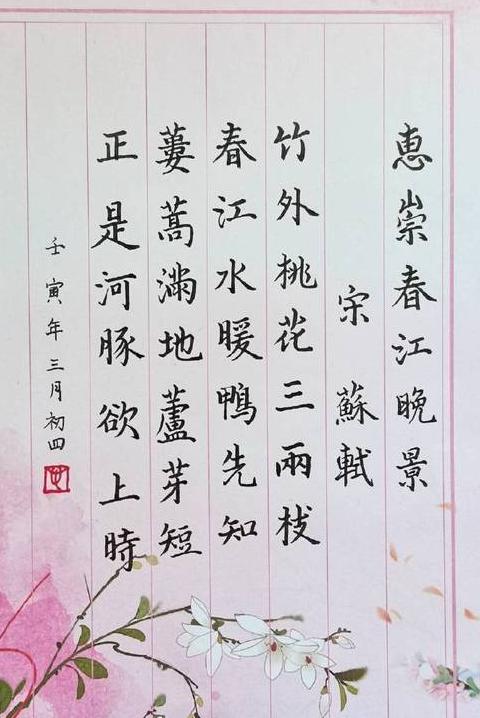 惠崇春江晚景
宋 蘇軾
竹外桃花三兩枝
春江水暖鴨先知
蔞蒿滿地蘆芽短
正是河豚欲上時
壬寅年三月初四